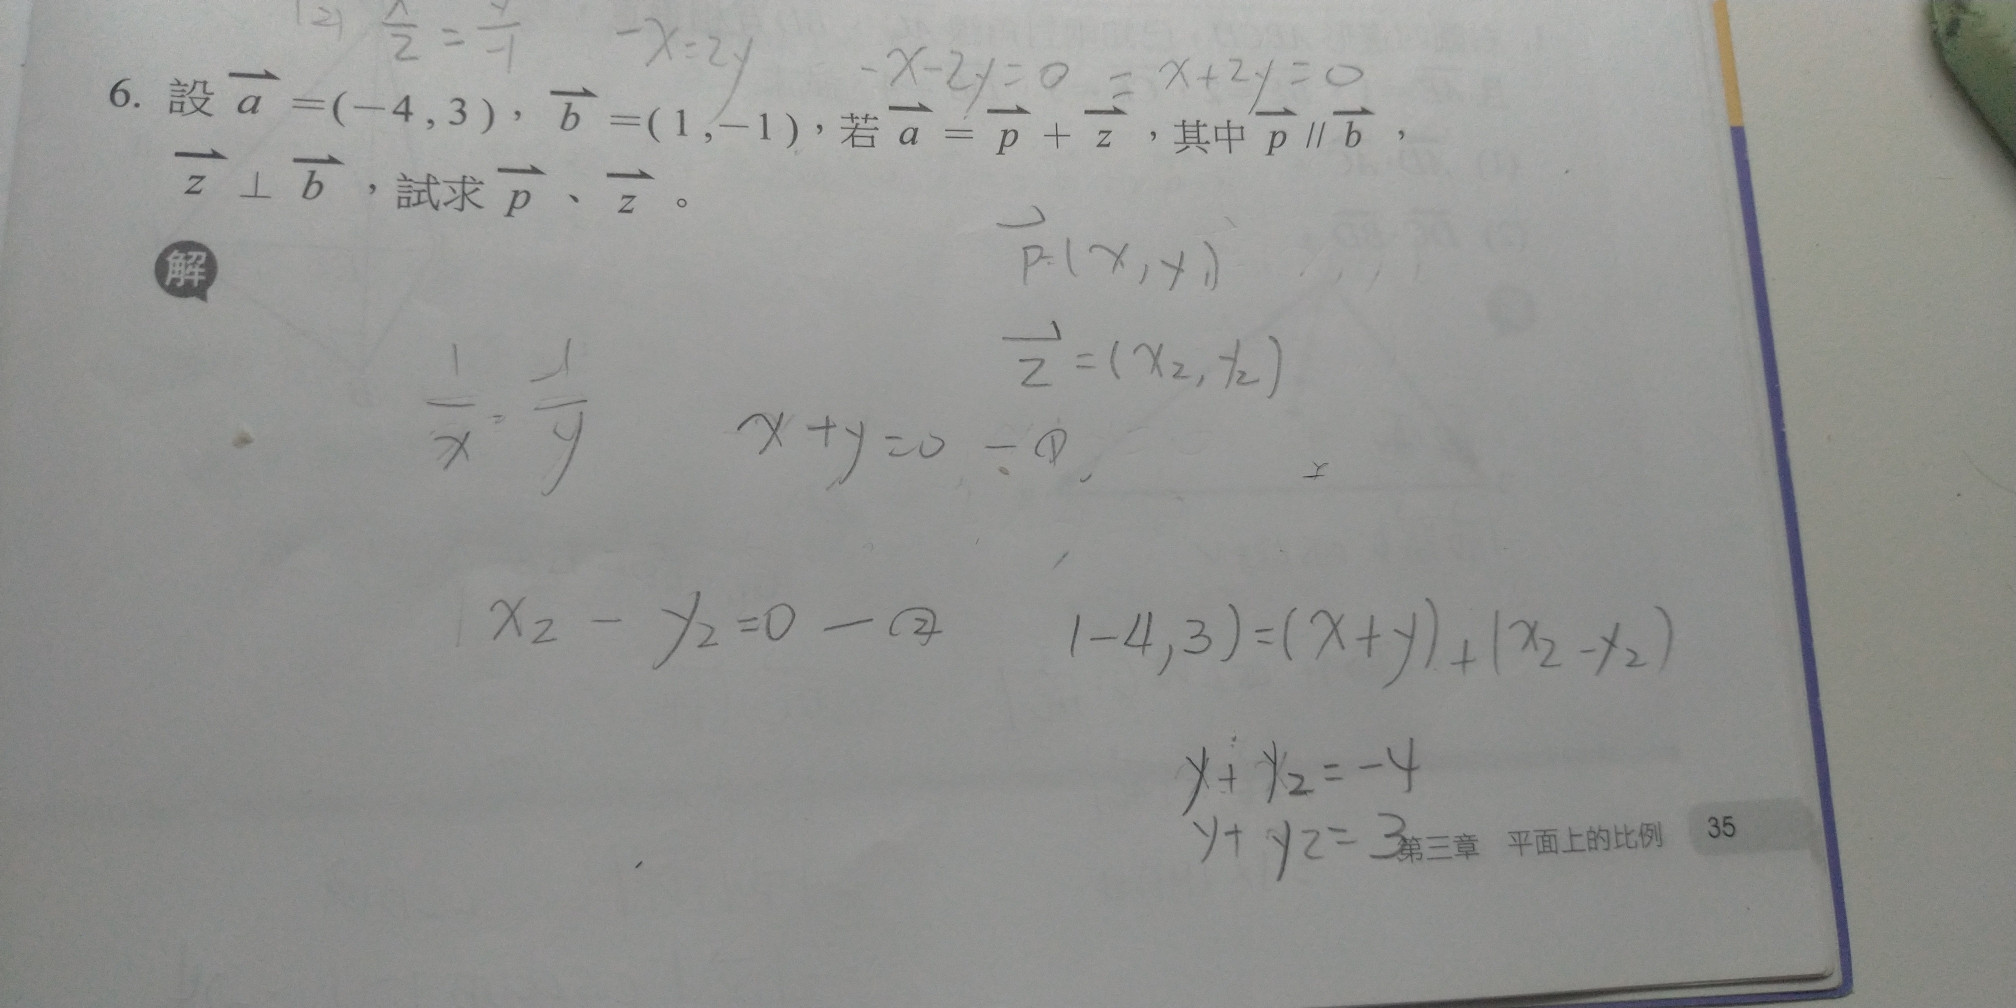 (2) x/2 = y/-1 -x=2y -x-2y=0 = x+2y=0
6. 設 a =(-4,3),b =(1,-1),若 a = p + z ,其中 p // b ,
z ⊥ b ,試求 p 、 z 。
解
p=(x,y)
z=(x2,y2)
1/x = -1/y
x+y=0 -①
x2 - y2=0 -②
(-4,3)=(x+y)+(x2-y2)
y+y2=-4
y+y2=3
第三章 平面上的比例 35